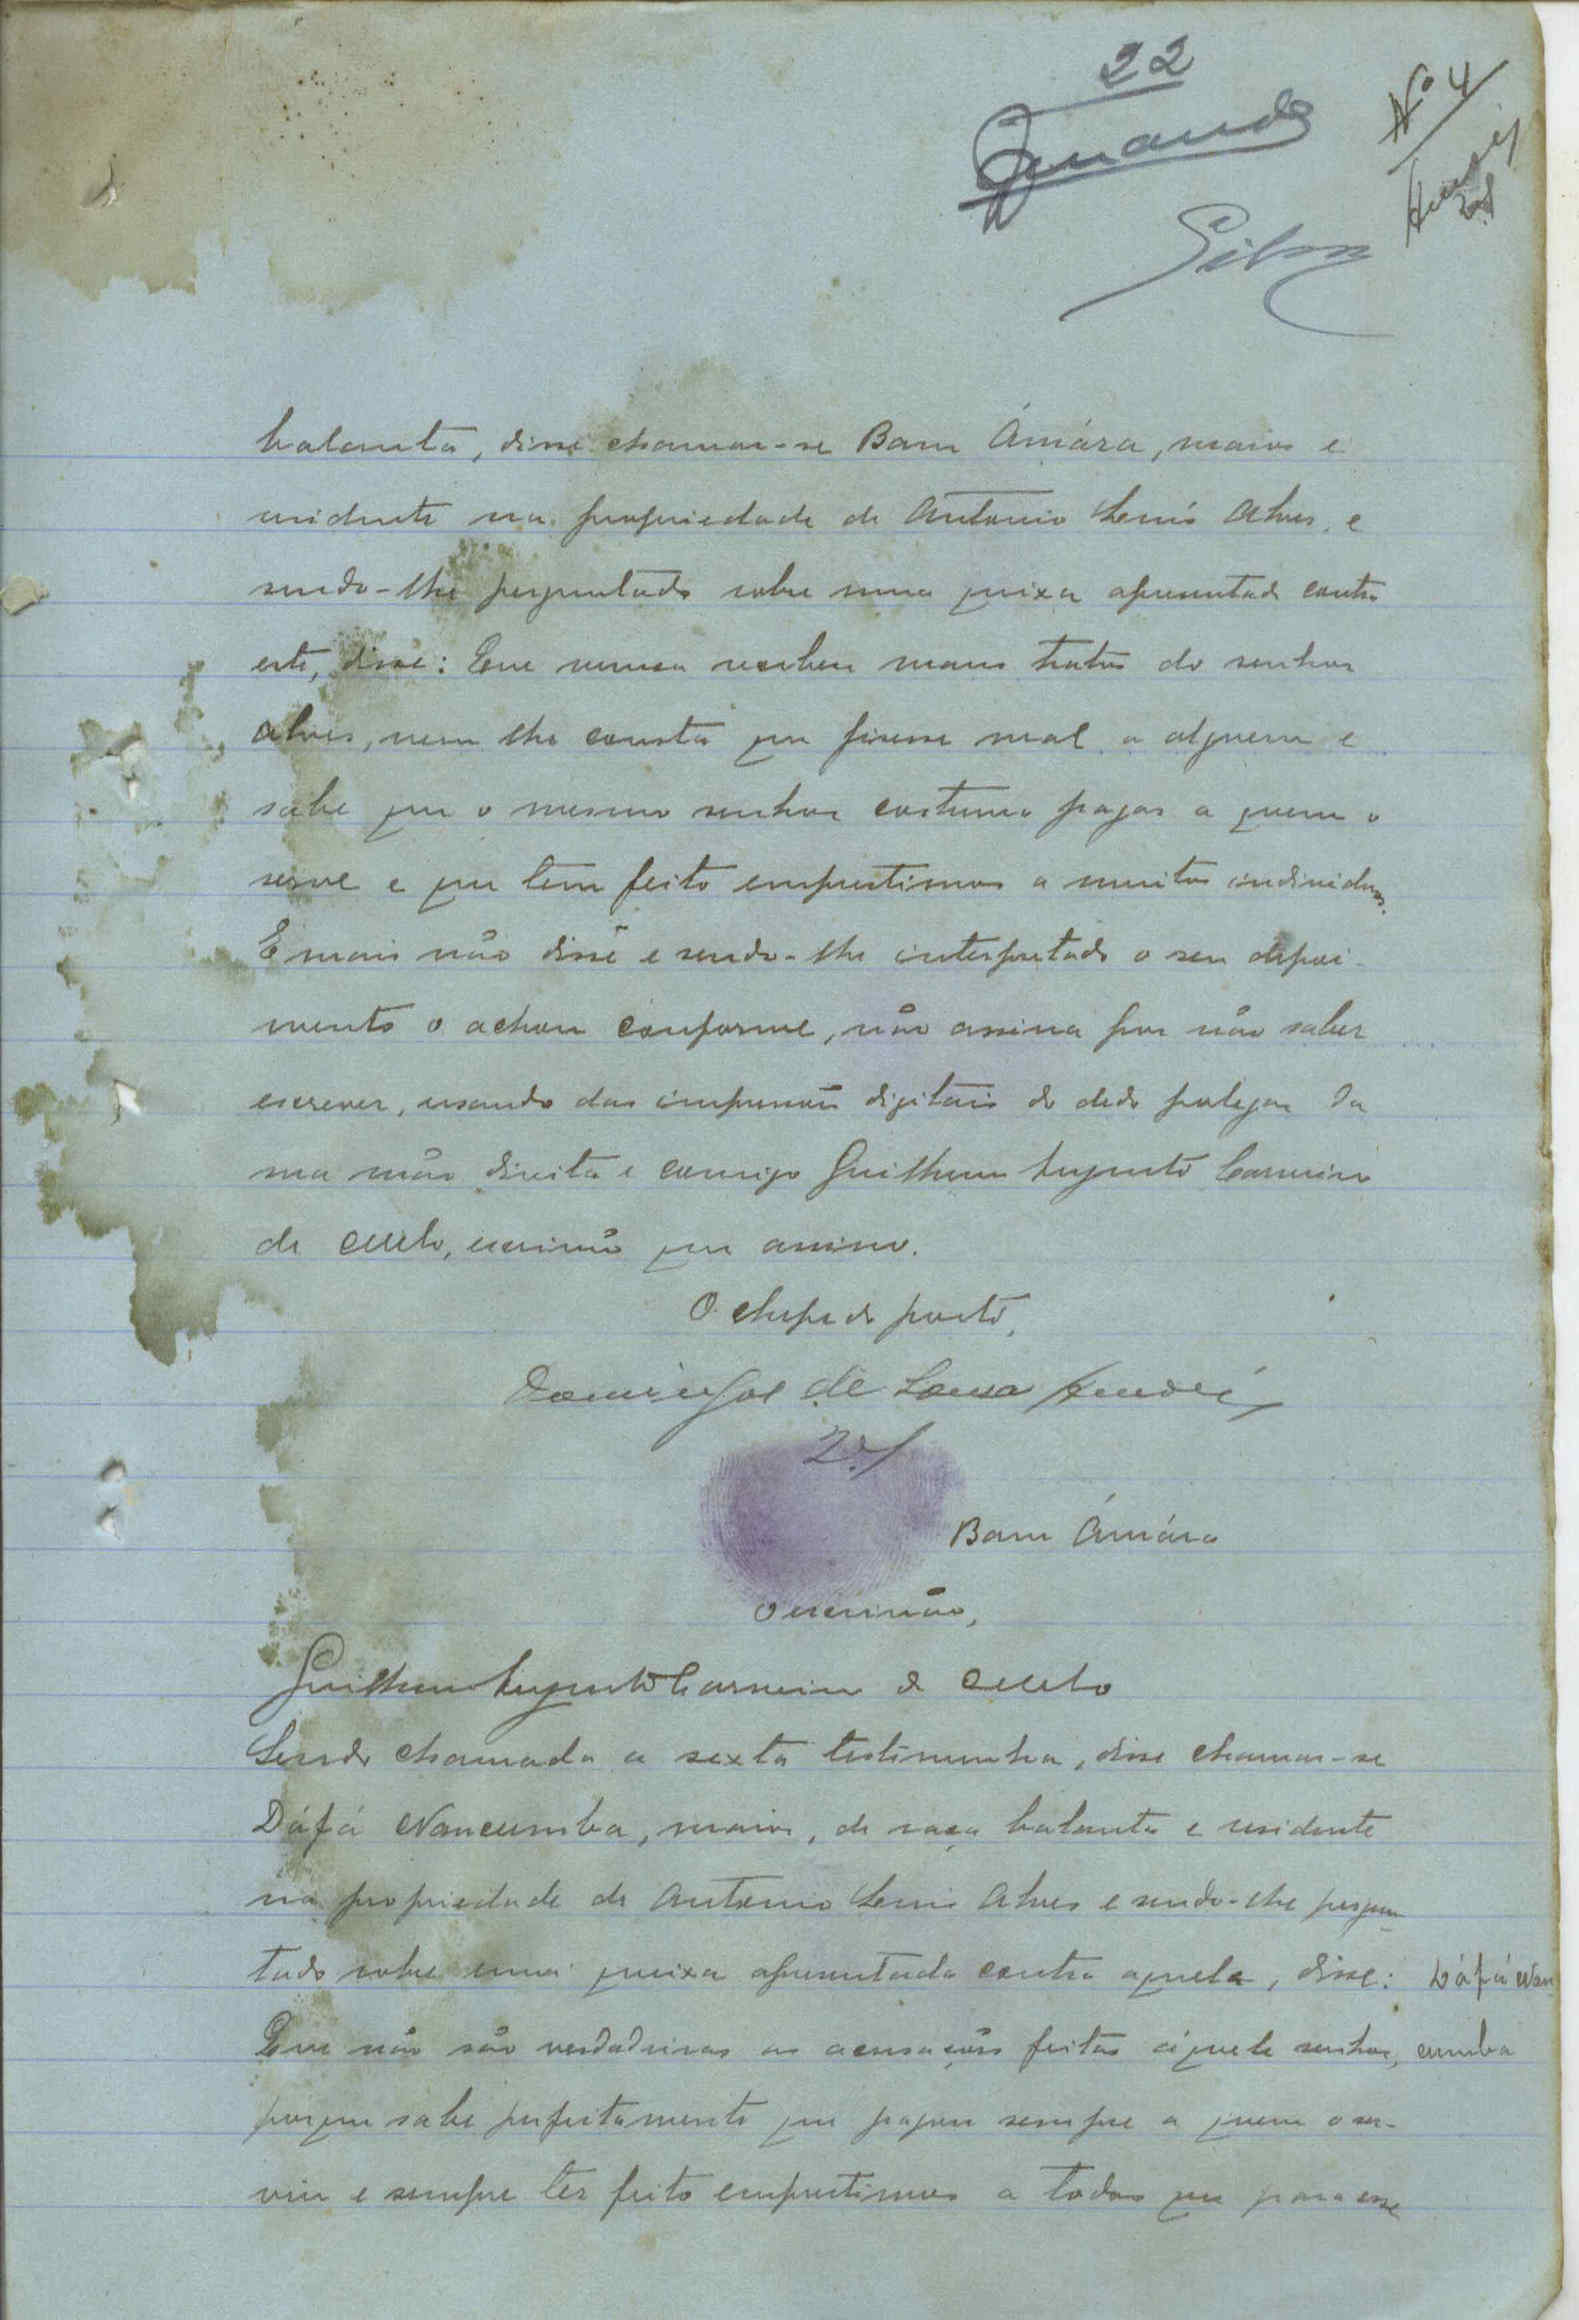 22
Fernandes
Silva
Nº 4
balanta, disse chamar-se Bam Ámára, maior e
residente na propriedade de Antonio Luis Alves, e
sendo-lhe perguntado sobre uma queixa apresentada contra
este, disse: Que nunca recebeu maus tratos do senhor
Alves, nem lhe consta que fizesse mal a alguem e
sabe que o mesmo senhor costuma pagar a quem o
serve e que tem feito emprestimos a muitos individuos.
E mais não disse e sendo-lhe interpretado o seu depoi-
mento o achou conforme, não assina por não saber
escrever, usando das impressões digitais do dedo polegar da
sua mão direita e comigo Guilherme Augusto Carneiro
de Mello, escrivão que assino.
O chefe do posto,
Domingos de Sousa
Bam Ámára
O escrivão,
Guilherme Augusto Carneiro de Mello
Sendo chamada a sexta testimunha, disse chamar-se
Dáfá Nancumba, maior, de raça balanta e residente
na propriedade de Antonio Luis Alves e sendo-lhe pergun-
tado sobre uma queixa apresentada contra aquele, disse:
Dáfá Nan
Que não são verdadeiras as acusações feitas áquele senhor,
cumba
porque sabe perfeitamente que pagou sempre a quem o ser-
viu e sempre ter feito emprestimos a todos que para esse